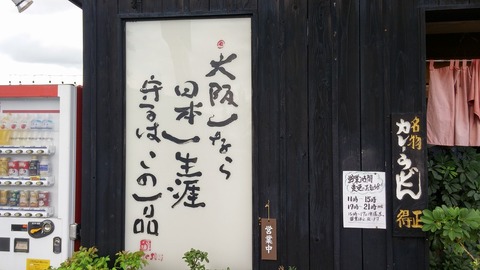 大阪一なら
日本一生涯
守るは、この一品
営業中
営業時間
11時~15時
17時~21時
名物
カレーうどん
得正